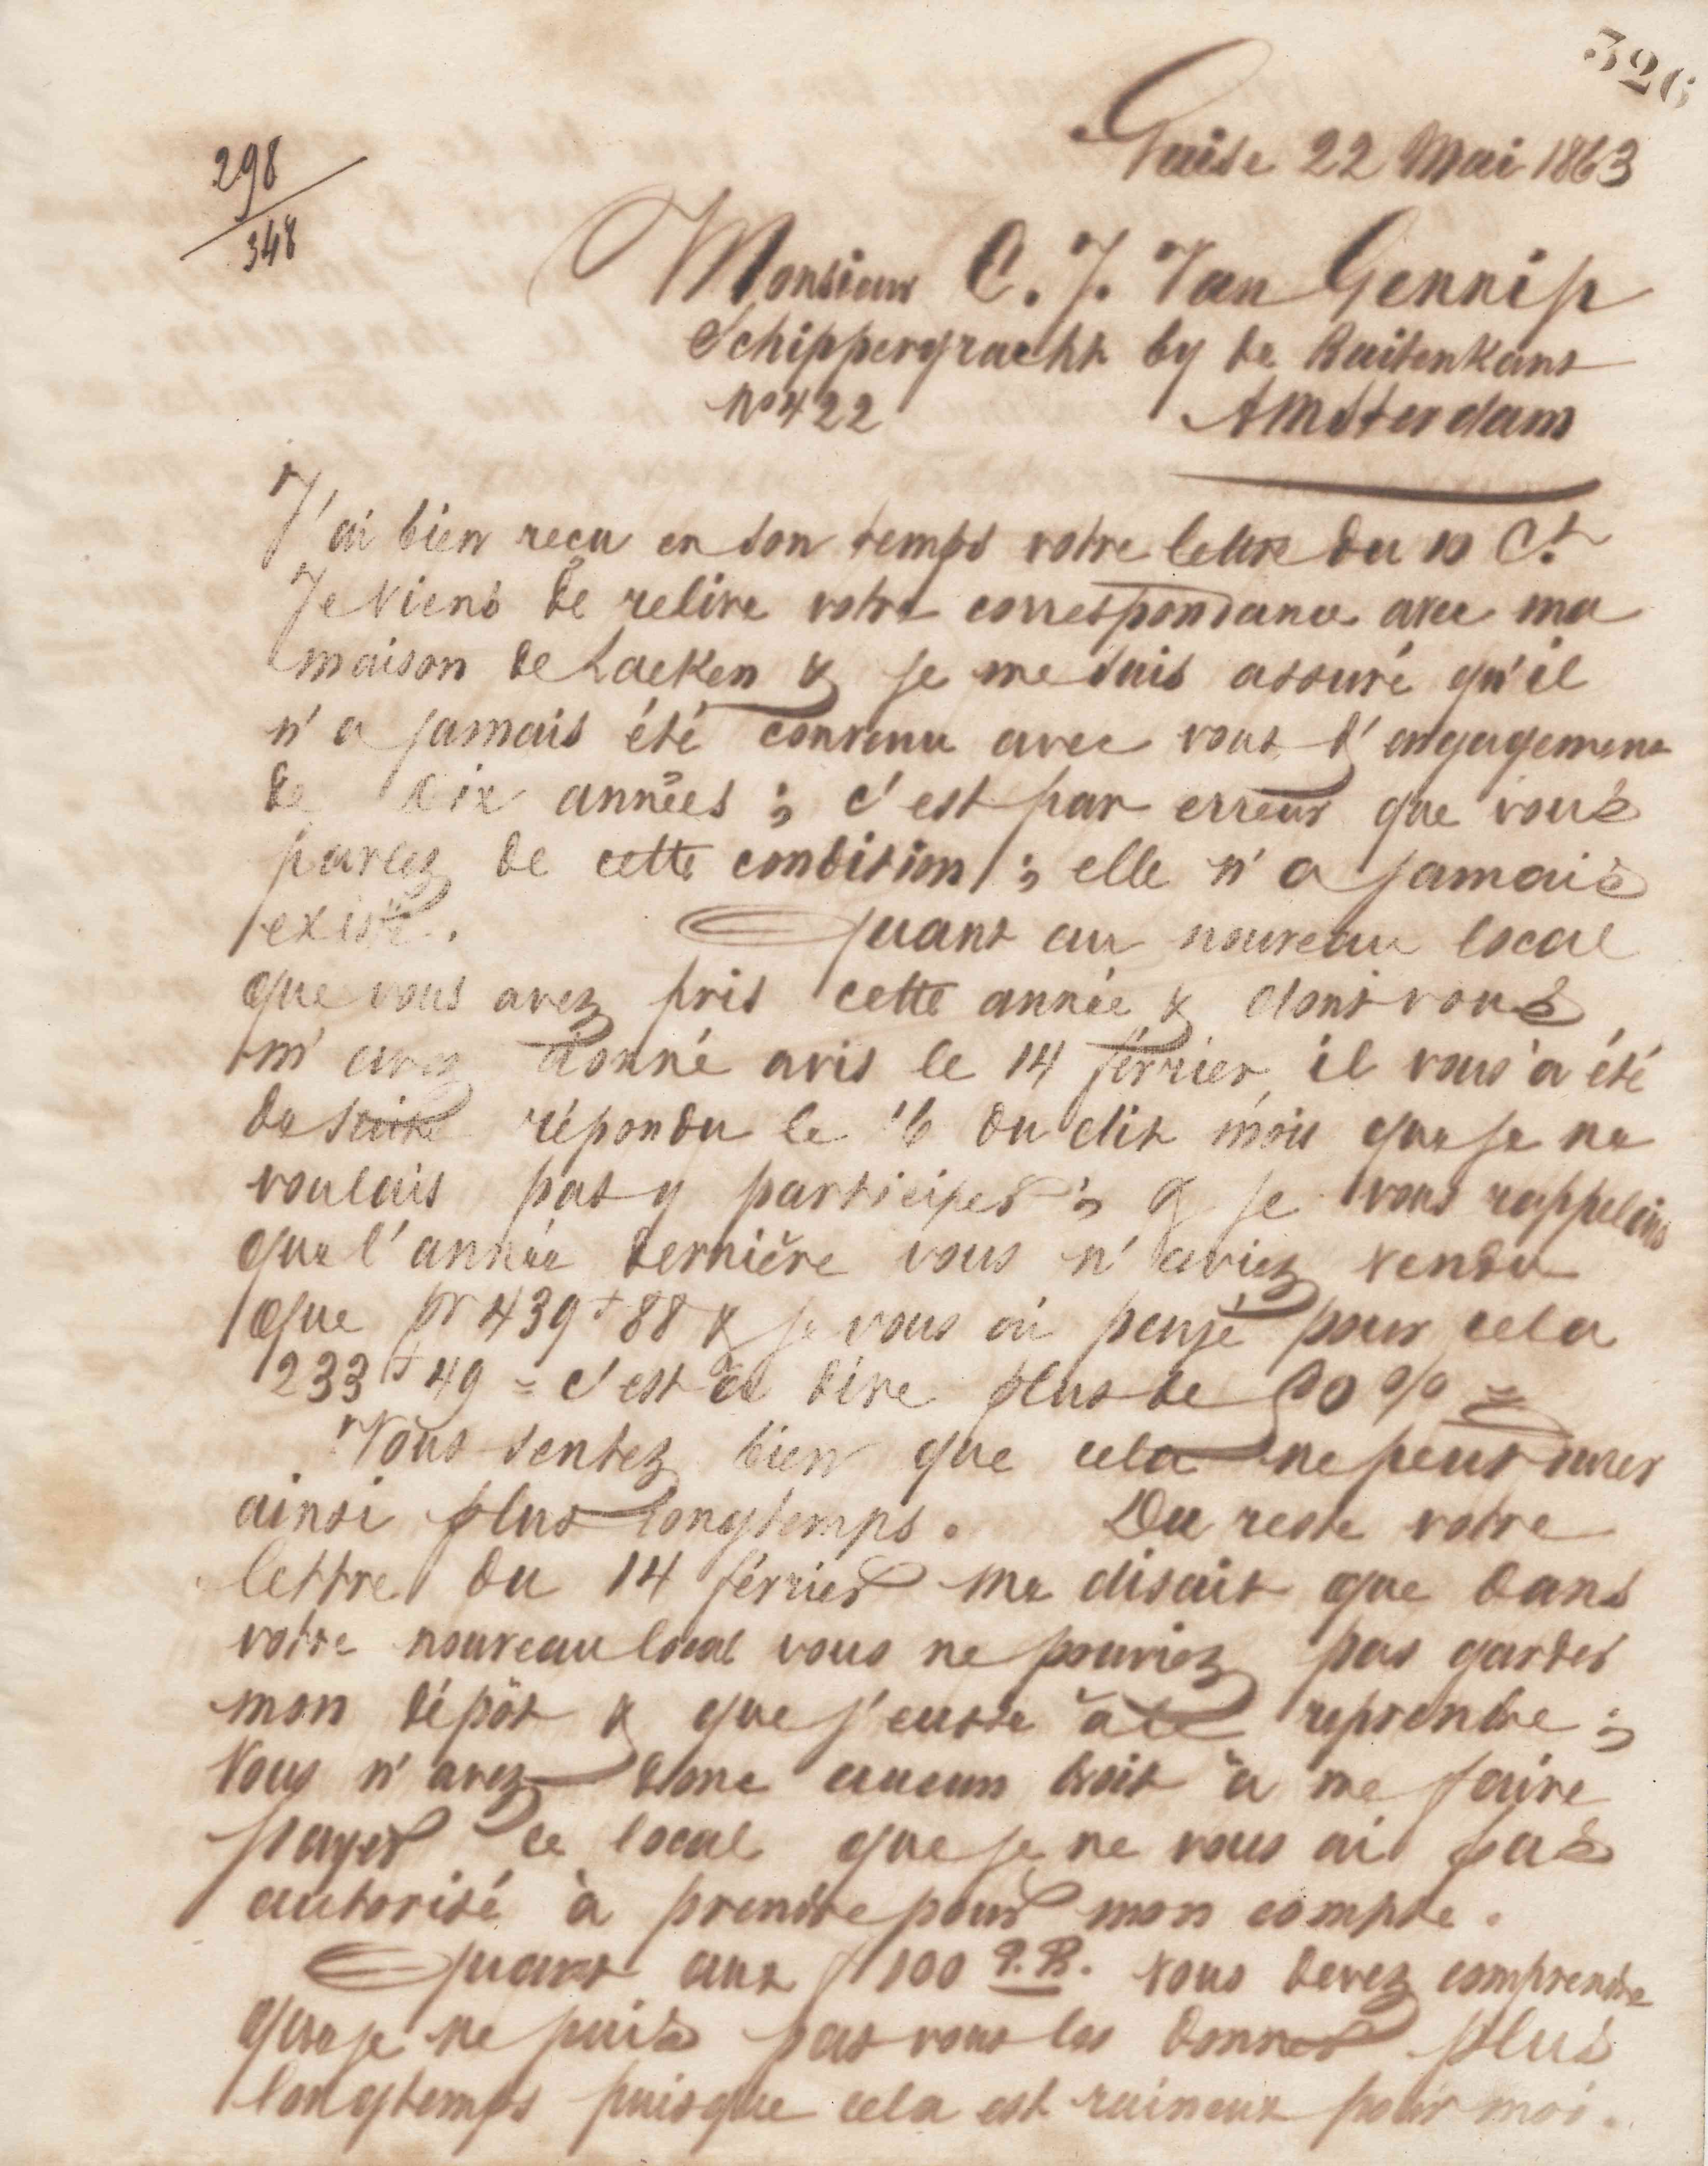 326
298
348
Guise 22 Mai 1863
Monsieur C. J. Van Gennip
Schippergracht by de Buitenkant
No 422 Amsterdam
J'ai bien reçu en son temps votre lettre du 10 Ct.
Je viens de relire votre correspondance avec ma
maison de Laeken & je me suis assuré qu'il
n'a jamais été convenu avec vous d'engagement
de dix années ; c'est par erreur que vous
parlez de cette condition ; elle n'a jamais
existé. Quant au nouveau local
que vous avez pris cette année & dont vous
m'avez donné avis le 14 février, il vous a été
de suite répondu le 16 du dit mois que je ne
voulais pas y participer ; & je vous rappelais
que l'année dernière vous n'aviez vendu
que pr 439 f 88 & je vous ai payé pour cela
233 f 49 = c'est à dire plus de 50 % =
Vous sentez bien que cela ne peut durer
ainsi plus longtemps. Du reste votre
lettre du 14 février me disait que dans
votre nouveau local vous ne pouviez pas garder
mon dépôt & que j'eusse à le reprendre ;
Vous n'avez donc aucun droit à me faire
payer ce local que je ne vous ai pas
autorisé à prendre pour mon compte.
Quant aux f 100 P.B. vous devez comprendre
que je ne puis pas vous les donner plus
longtemps puisque cela est ruineux pour moi.